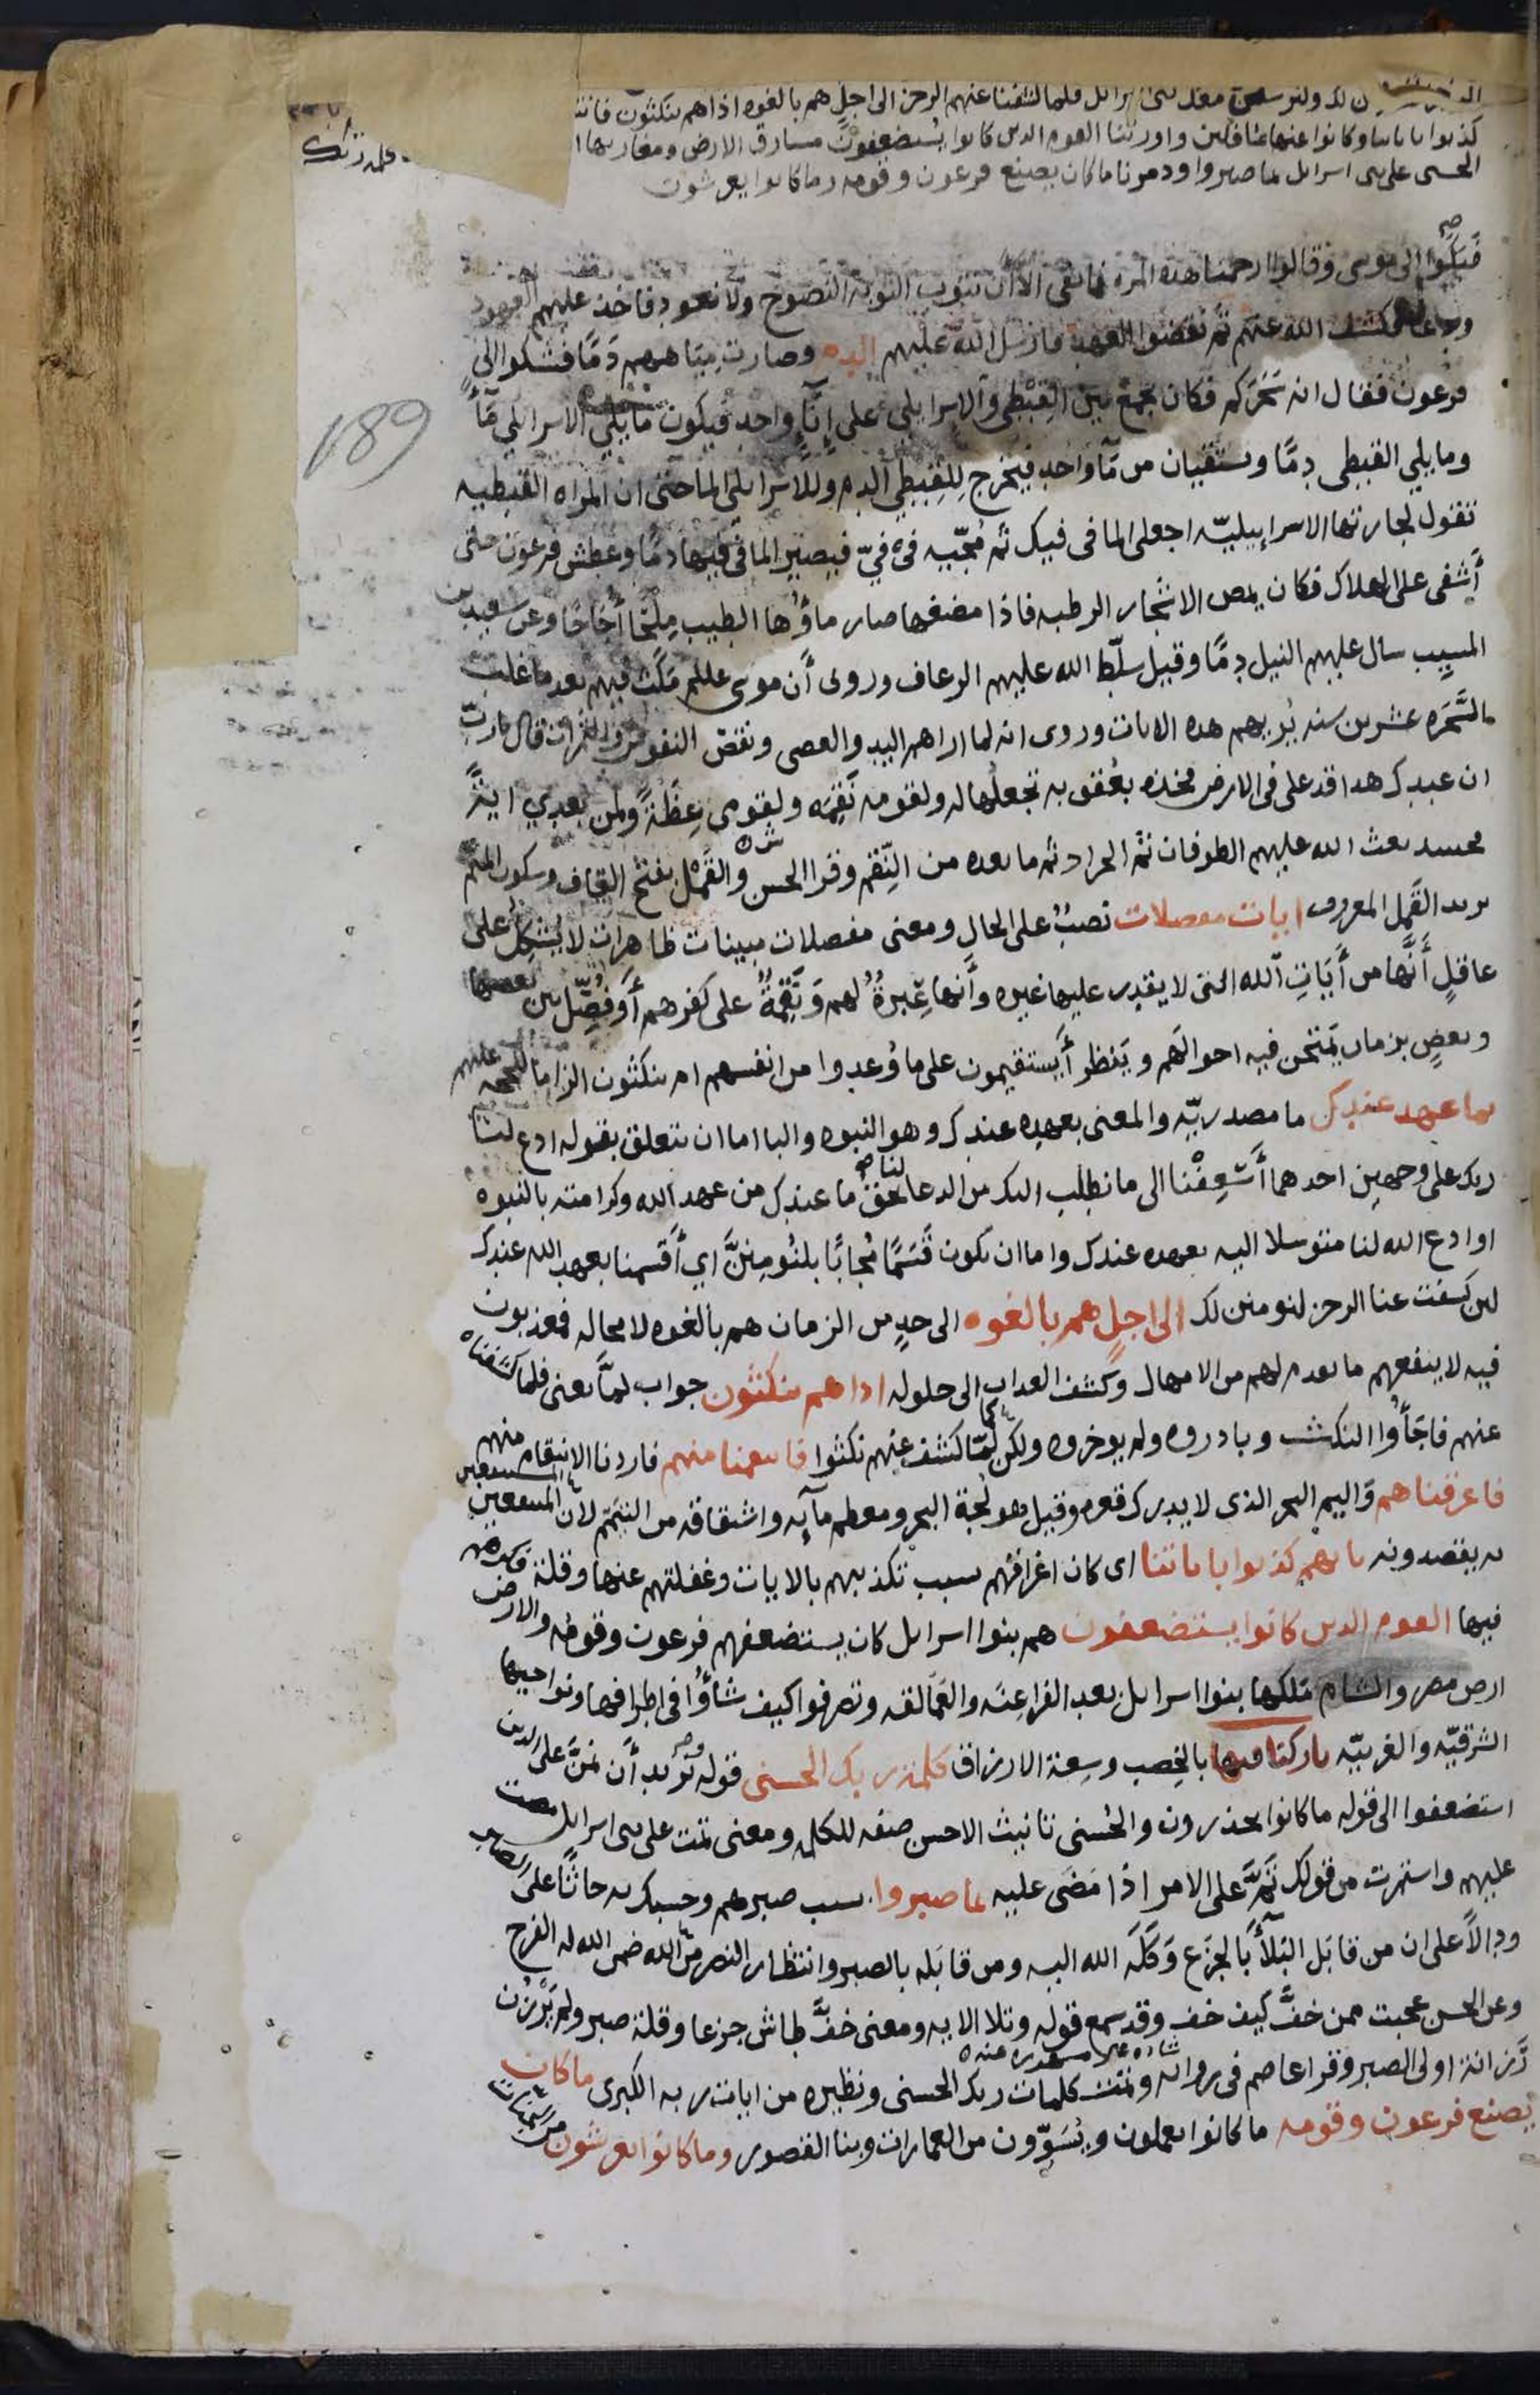 لك ولنرسلن معك بنى اسرائل فلما كشفنا عنهم الرجز الى اجل هم بالغوه اذا هم ينكثون فانتـ
كذبوا باياتنا وكانوا عنها غافلين واورثنا القوم الدين كانوا يستضعفون مشارق الارض ومغاربها ا
كلمة ربك
الحسنى على بنى اسرائل بما صبروا ودمرنا ما كان يصنع فرعون وقومه وما كانوا يعرشون
فَبَكَوا الى موسى وقالوا ارحمنا هذه المره فما بقى الا ان نتوب التوبه النصوح ولا نعود فاخذ عليهم العهود
ودعا فكشف الله عنهم ثم نقضوا العهد فارسل الله عليهم الدم وصارت مياههم دَمًا فشكوا الى
فرعون فقال انه سَحَركم فكان يجمع بين القِبْطى والاسرايلى على إنآءٍ واحدٍ فيكون ما يلى الاسرايلي مَآءً
189
وما يلي القبطى دمًا ويستقيان من مآءٍ واحدٍ فيخرج للقِبطي الدم وللاسرايلى الما حتى ان المراه القبطيه
تقول لجارتها الاسراييليّه اجعلى الما فى فيك ثم مُجّيه فى فيّ فيصير الما فى فيها دمًا وعطش فرعون حتى
أَشفى على الهلاك فكان يمص الاشجار الرطبه فاذا مضغها صار ماؤُها الطيب مِلْحًا أُجَاجًا وعن سعيد بن
المسيِب سال عليهم النيل دمًا وقيل سلّط الله عليهم الرعاف وروى أن موسى عللم مَكَث فيهم بعد ما غلب
السَّحَره عشرين سنه يُريهم هده الايات وروى انه لما اراهم اليد والعصى ونقصَ النفوس والثمرات قال يارب
ان عبدك هدا قد على فى الارض فخذه بعُقوبه تجعلها له ولقومه نَقِمَه ولقومى عِظَةً ولمن بعدي ايةً
فحينيد بعث الله عليهم الطوفان ثم الجراد ثم ما بعده من النِقم وقرا الحسن والقَمْل بفتح القاف وسكون الميم
يريد القَمل المعروف ايات مفصلات نصبٌ على الحالِ ومعنى مفصلات مبينات ظاهرات لا يُشكِلُ على
عاقلٍ أَنَّها من أَيَاتِ الله التى لا يقدر عليها غيره وأنها عِبرةٌ لهم ونِقمةٌ على كفرهم أو فُصِّل بين بعضها
وبعضٍ بزمان يمتحن فيه احوالهم وينظر أَيستقيمون على ما وُعدوا من انفسهم ام ينكثون الزاما للحجه عليهم
بما عهد عندك ما مصدريّه والمعنى بعهده عندك وهو النبوه والبا اما ان تتعلق بقوله ادع لنا
ربك على وجهين احدهما أَسْعِفْنا الى ما نطلب اليك من الدعا لنا بحق ما عندك من عهد الله وكرامته بالنبوه
او ادع الله لنا متوسلا اليه بعهده عندك واما ان يكون قَسَمًا مُجابًا بلنُومِننَّ اي أَقسمنا بعهد الله عندك
لين كشفت عنا الرجز لنومنن لك الى اجلٍ هم بالغوه الى حدٍ من الزمان هم بالغوه لا محاله فمعذبون
فيه لا ينفعهم ما تقدم لهم من الامهال وكشف العداب الى حلوله ادا هم ينكثون جواب لمَّا يعنى فلما كشفناه
عنهم فاجَأُوا النكث وبادروه ولم يوخروه ولكن لمّا كشف عنهم نكثوا فانتقمنا منهم فاردنا الانتقام منهم
فاغرقناهم وَاليم البحر الذى لا يدرك قعره وقيل هو لُجة البحر ومعظم مآيه واشتقاقه من التيَمّم لان المستنفعين
به يقصدونه بانهم كذبوا باياتنا اى كان اغراقهم بسبب تكذيبهم بالايات وغفلتهم عنها وقلة فكرهم
فيها القوم الدين كانوا يستضعفون هم بنوا اسرايل كان يستضعفهم فرعون وقومُه والارض
ارض مصر والشام ملكها بنوا اسرايل بعد الفراعِنَه والعَمالقه وتصرفوا كيف شاؤُا فى اطرافها ونواحيها
الشرقيّه والغربيّه باركنا فيها بالخِصب وسِعة الارزاق كلمة ربك الحسنى قوله نريد أَن نمُنَّ على الذين
استضعفوا الى قوله ما كانوا يحذرون والحُسنى تانيث الاحسن صفه للكلمه ومعنى تمت على بنى اسرايل مضت
عليهم واستمرت من قولك تَمَّ على الامر اذا مَضَى عليه بما صبروا بسبب صبرهم وحسبك به حاثًّا على الصبر
ودالاً على ان من قابَل البَلآءَ بالجزَع وَكَلَه الله اليه ومن قابَله بالصبر وانتظار النصر من الله ضمن الله له الفرج
وعن الحسن عجبت ممن خفَّ كيف خف وقد سمع قوله وتلا الايه ومعنى خفَّ طاش جزعا وقلة صبر ولم يَرْزُن
رَزانة اولى الصبر وقرا عاصم فى روايه وتمت كلمات ربك الحسنى ونظيره من ايات ربه الكبرى ما كان
يصنع فرعون وقومه ما كانوا يعملون ويُسَوّون من العمارات وبنا القصور وما كانوا يعرشون